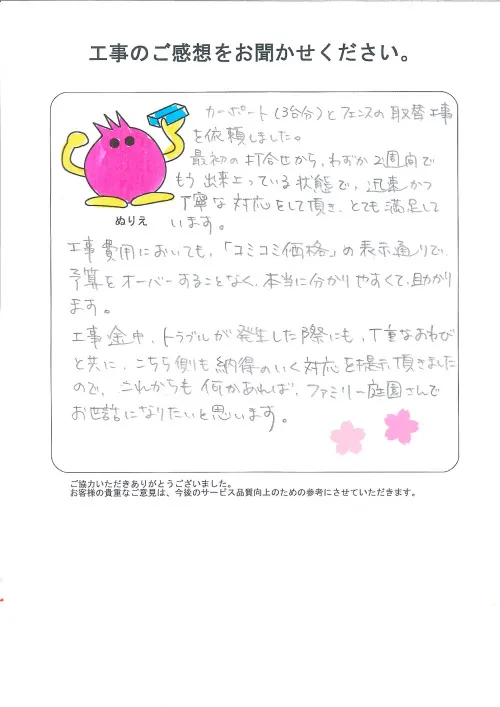 工事のご感想をお聞かせください。
カーポート(3台分)とフェンスの取替工事
を依頼しました。
最初の打合せから、わずか2週間で
もう出来上っている状態で、迅速かつ
丁寧な対応をして頂き、とても満足して
います。
ぬりえ
工事費用においても、「コミコミ価格」の表示通りで、
予算をオーバーすることなく、本当に分かりやすくて、助かり
ます。
工事途中、トラブルが発生した際にも、丁重なおわび
と共に、こちら側も納得のいく対応を提示頂きました
ので、これからも何かあれば、ファミリー庭園さんで
お世話になりたいと思います。
ご協力いただきありがとうございました。
お客様の貴重なご意見は、今後のサービス品質向上のための参考にさせていただきます。